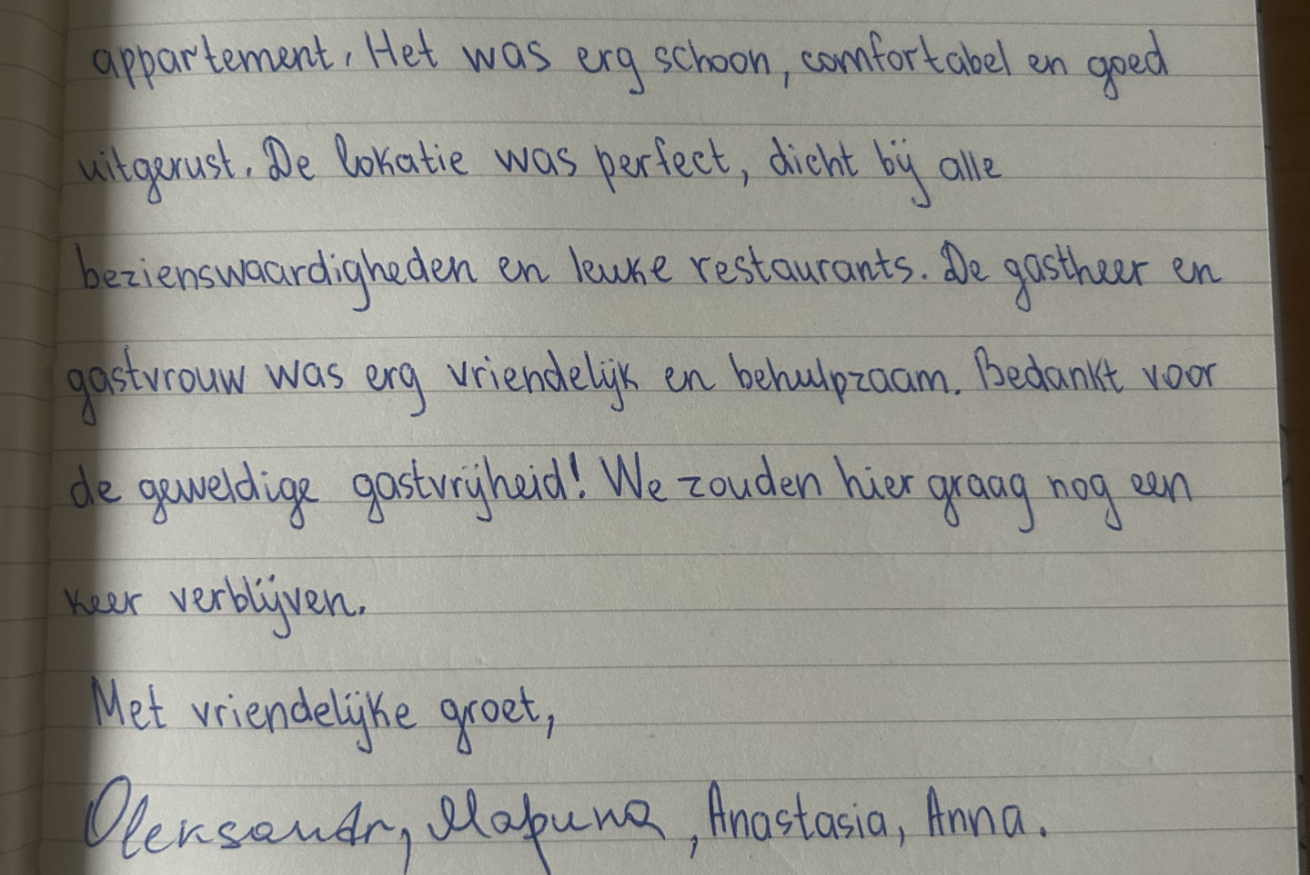 appartement. Het was erg schoon, comfortabel en goed
uitgerust. De lokatie was perfect, dicht bij alle
bezienswaardigheden en leuke restaurants. De gastheer en
gastvrouw was erg vriendelijk en behulpzaam. Bedankt voor
de geweldige gastvrijheid! We zouden hier graag nog een
keer verblijven.
Met vriendelijke groet,
Oleksandr, Марина, Anastasia, Anna.